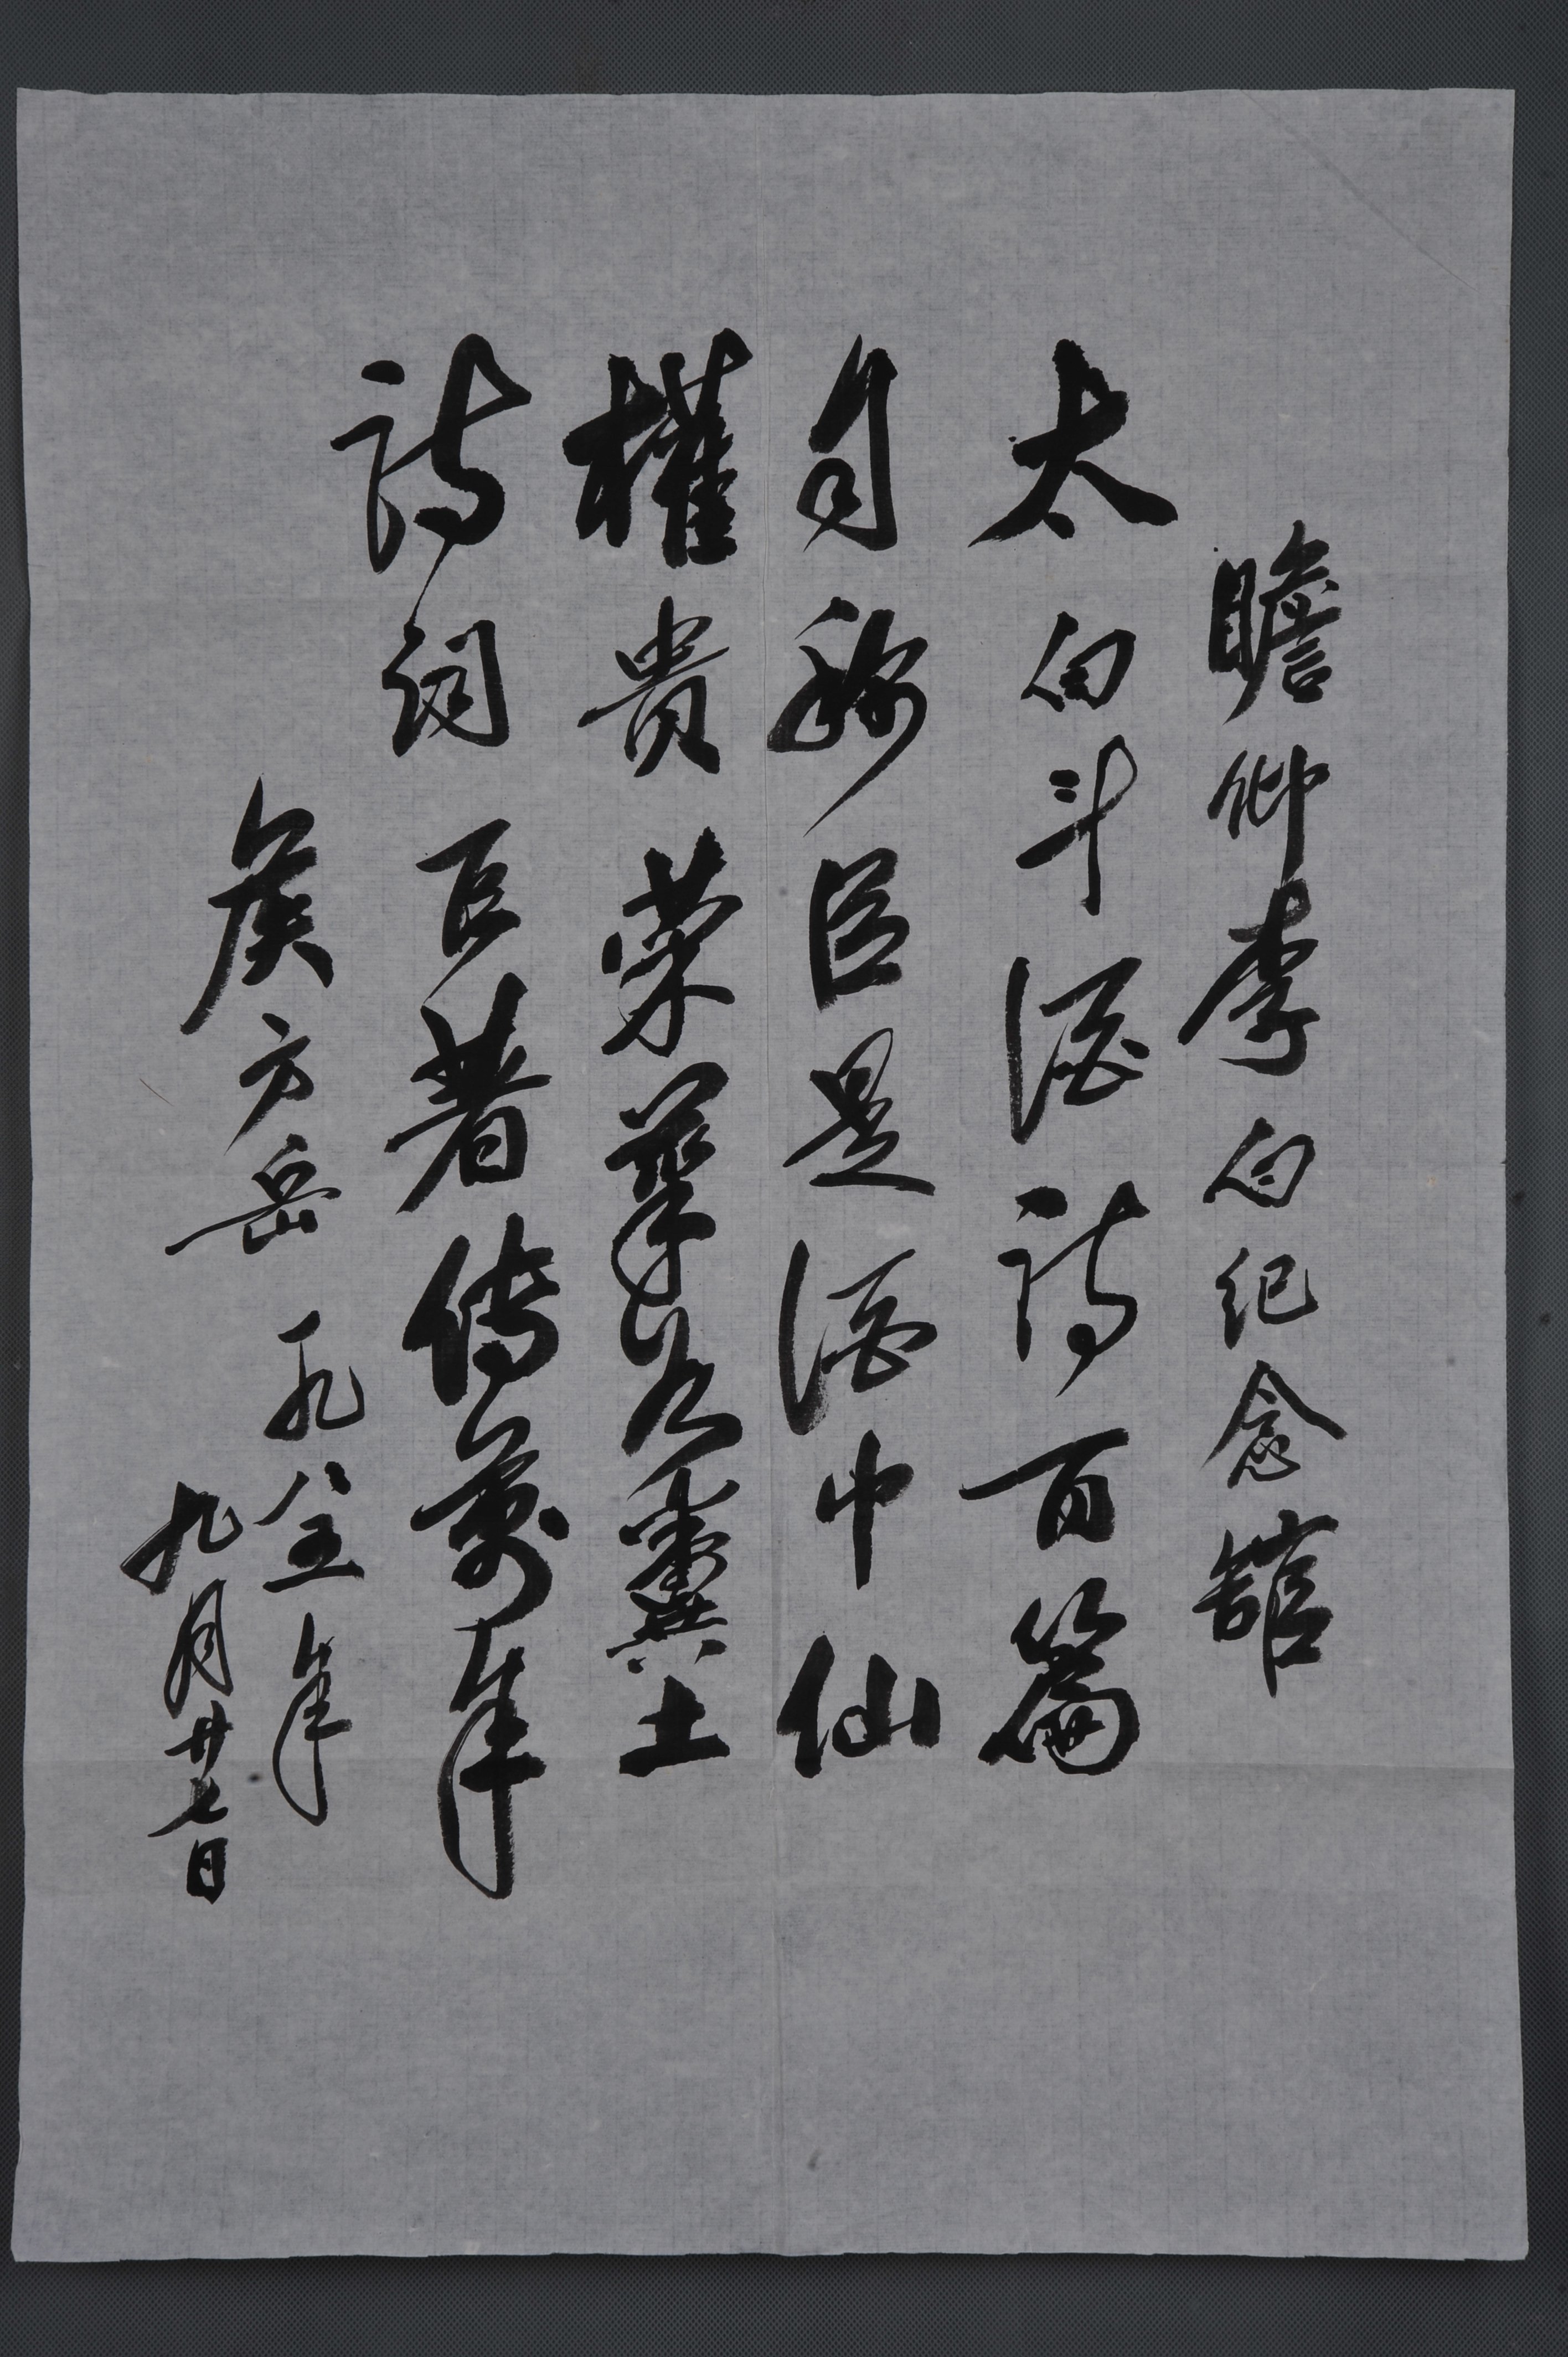 瞻仰李白纪念館
太白斗酒詩百篇
自称臣是酒中仙
權贵荣華为糞土
詩词巨著傳萬年
侯方岳 一九八五年
九月廿七日